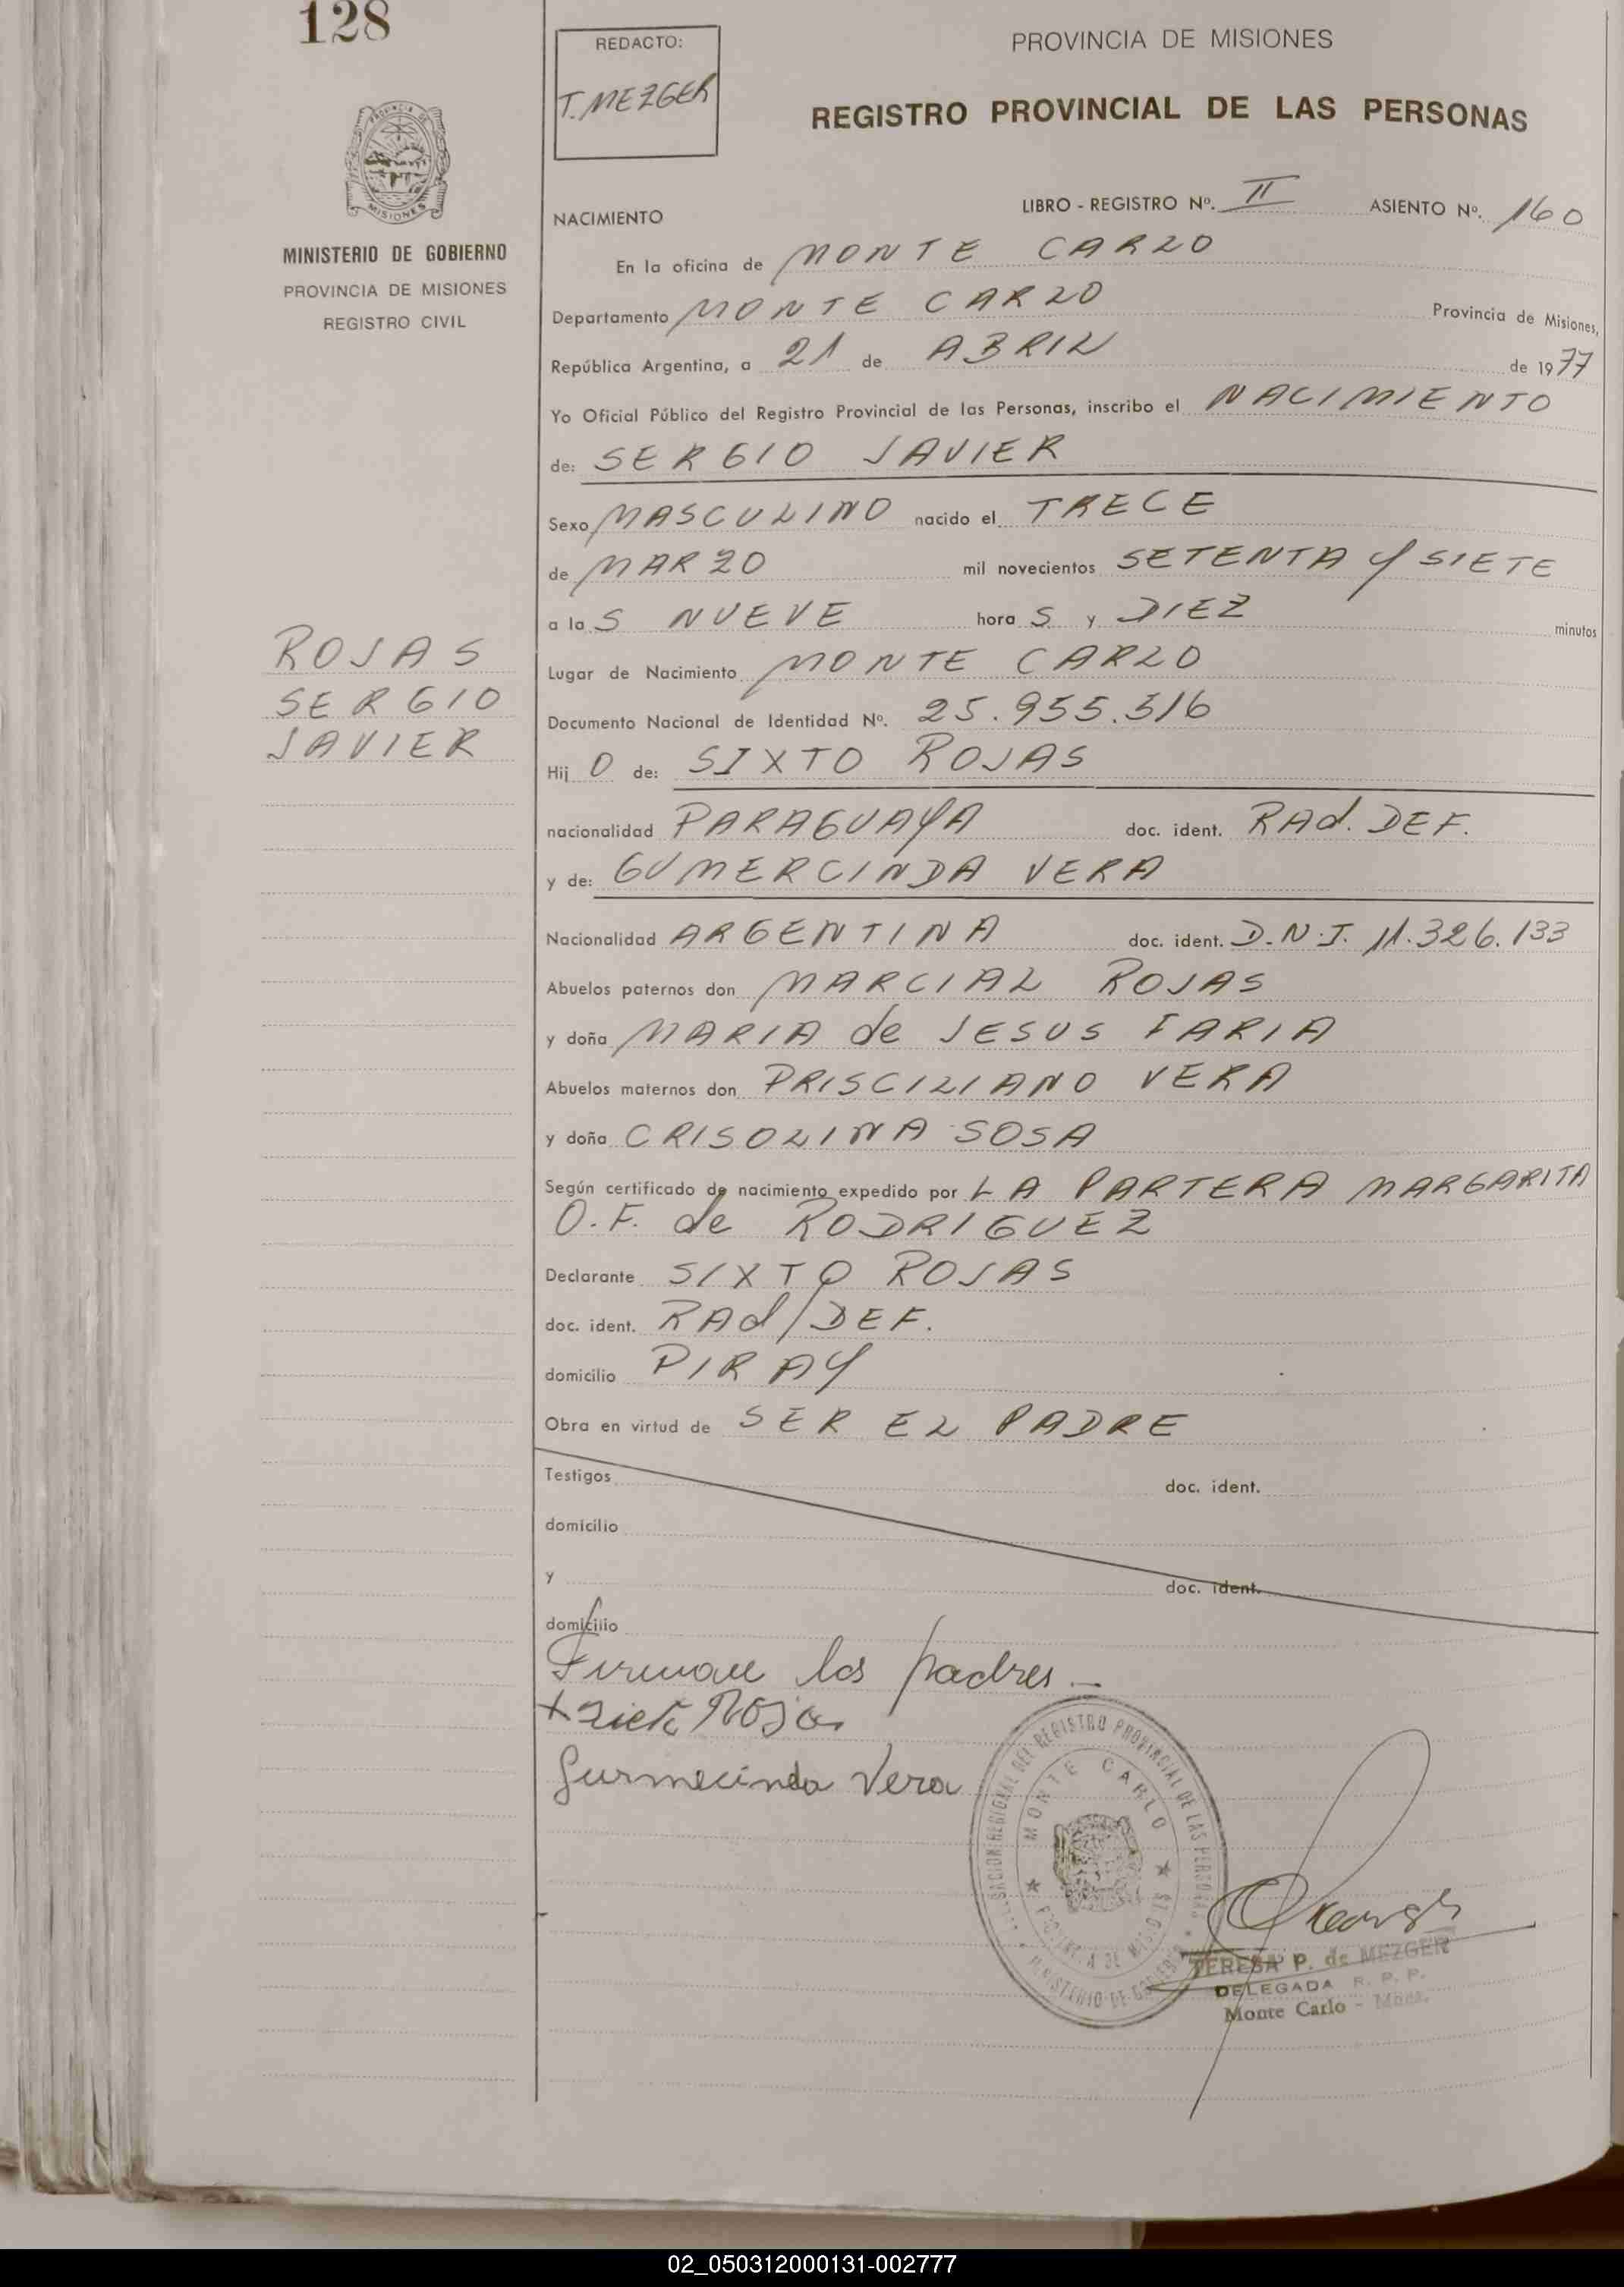 128
REDACTO:
T. MEZGER
PROVINCIA DE MISIONES
REGISTRO PROVINCIAL DE LAS PERSONAS
PROVINCIA DE
MISIONES
MINISTERIO DE GOBIERNO
PROVINCIA DE MISIONES
REGISTRO CIVIL
NACIMIENTO
LIBRO - REGISTRO Nº. II ASIENTO Nº. 160
En la oficina de MONTE CARLO
Departamento MONTE CARLO Provincia de Misiones,
República Argentina, a 21 de ABRIL de 1977
Yo Oficial Público del Registro Provincial de las Personas, inscribo el NACIMIENTO
de: SERGIO JAVIER
Sexo MASCULINO nacido el TRECE
de MARZO mil novecientos SETENTA Y SIETE
a la S NUEVE hora S y DIEZ minutos
ROJAS
SERGIO
JAVIER
Lugar de Nacimiento MONTE CARLO
Documento Nacional de Identidad Nº. 25.955.516
Hij O de: SIXTO ROJAS
nacionalidad PARAGUAYA doc. ident. RAd. DEF.
y de: GUMERCINDA VERA
Nacionalidad ARGENTINA doc. ident. D.N.I. 11.326.133
Abuelos paternos don MARCIAL ROJAS
y doña MARIA de JESUS FARIA
Abuelos maternos don PRISCILIANO VERA
y doña CRISOLINA SOSA
Según certificado de nacimiento expedido por LA PARTERA MARGARITA
O.F. de RODRIGUEZ
Declarante SIXTO ROJAS
doc. ident. RAd/DEF.
domicilio PIRAY
Obra en virtud de SER EL PADRE
Testigos doc. ident.
domicilio
y doc. ident.
domicilio
Firman los padres
Rojas
Gurmecinda Vera
REGIONAL DEL REGISTRO PROVINCIAL DE LAS PERSONAS
MONTE CARLO
MINISTERIO DE GOBIERNO
TERESA P. de MEZGER
DELEGADA R. P. P.
Monte Carlo - Mnes.
02_050312000131-002777